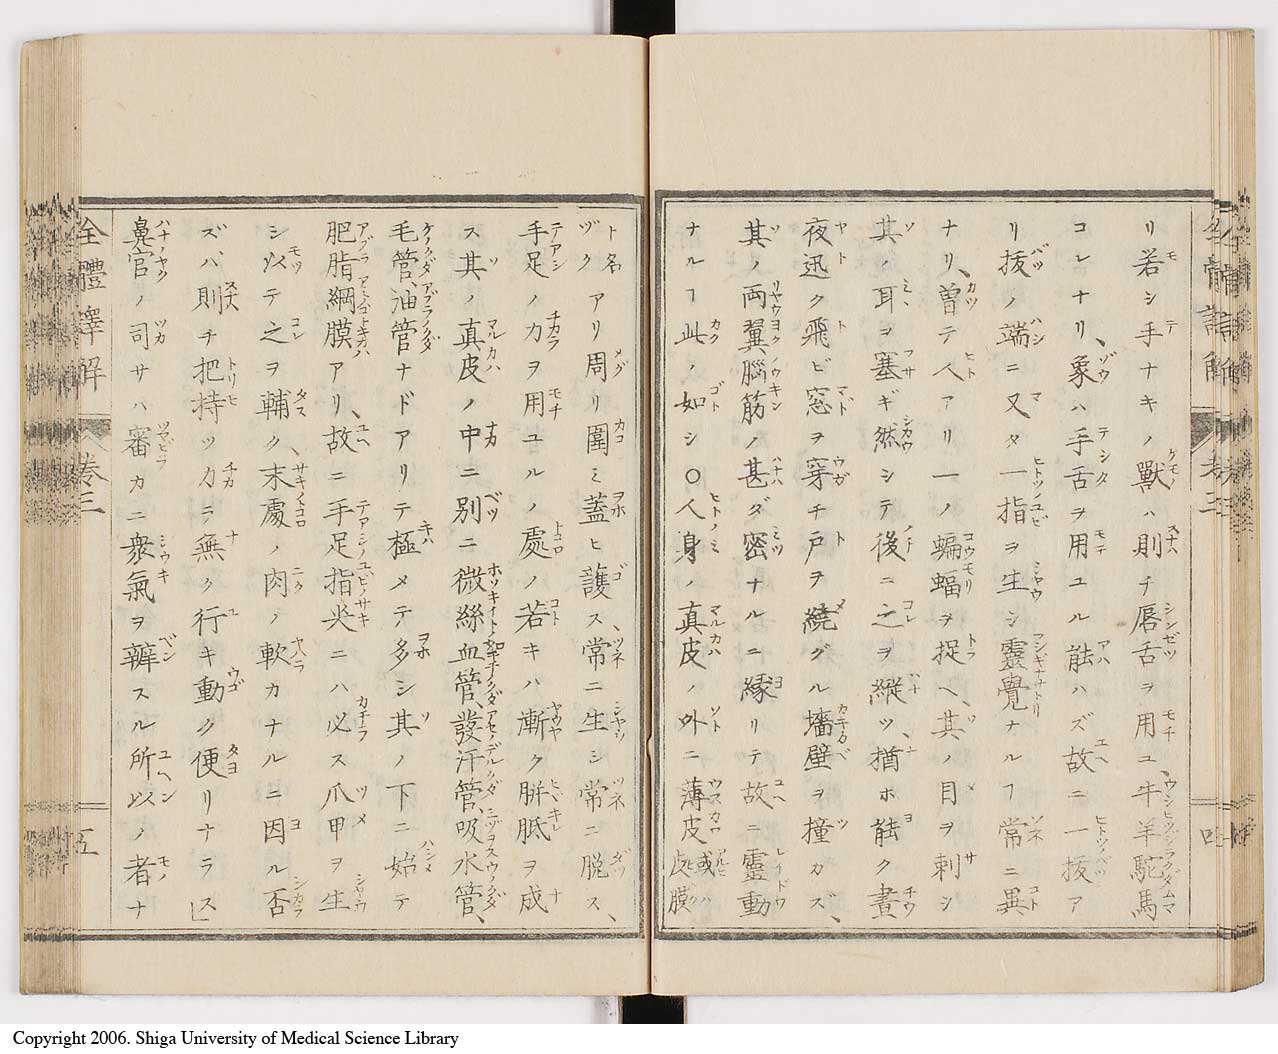 リ若シ手ナキノ獸ハ則チ唇舌ヲ用ユ、牛羊駝馬
コレナリ、象ハ手舌ヲ用ユル能ハズ故ニ一拔ア
リ拔ノ端ニ又タ一指ヲ生シ靈覺ナルヿ常ニ異
ナリ、曽テ人アリ一ノ蝙蝠ヲ捉ヘ、其ノ目ヲ刺シ
其ノ耳ヲ塞ギ然シテ後ニ之ヲ縦ツ、猶ホ能ク晝
夜迅ク飛ビ窓ヲ穿チ戸ヲ繞グル墻壁ヲ撞カズ、
其ノ両翼腦筋ノ甚ダ密ナルニ縁リテ故ニ靈動
ナルヿ此ノ如シ〇人身ノ真皮ノ外ニ薄皮或ハ皮膜
ト名ヅクアリ周リ圍ミ蓋ヒ護ス、常ニ生シ常ニ脱ス、
手足ノカヲ用ユルノ處ノ若キハ漸ク胼胝ヲ成
ス其ノ真皮ノ中ニ別ニ微絲血管、發汗管、吸水管、
毛管、油管ナドアリテ極メテ多シ其ノ下ニ始テ
肥脂綱膜アリ、故ニ手足指尖ニハ必ス爪甲ヲ生
シ以テ之ヲ輔ク、末處ノ肉ノ軟カナルニ因ル否
ズバ則チ把持ツカラ無ク行キ動ク便リナラス」
鼻官ノ司サハ審カニ衆氣ヲ辨スル所以ノ者ナ
全體譯解
卷三
五
Copyright 2006. Shiga University of Medical Science Library